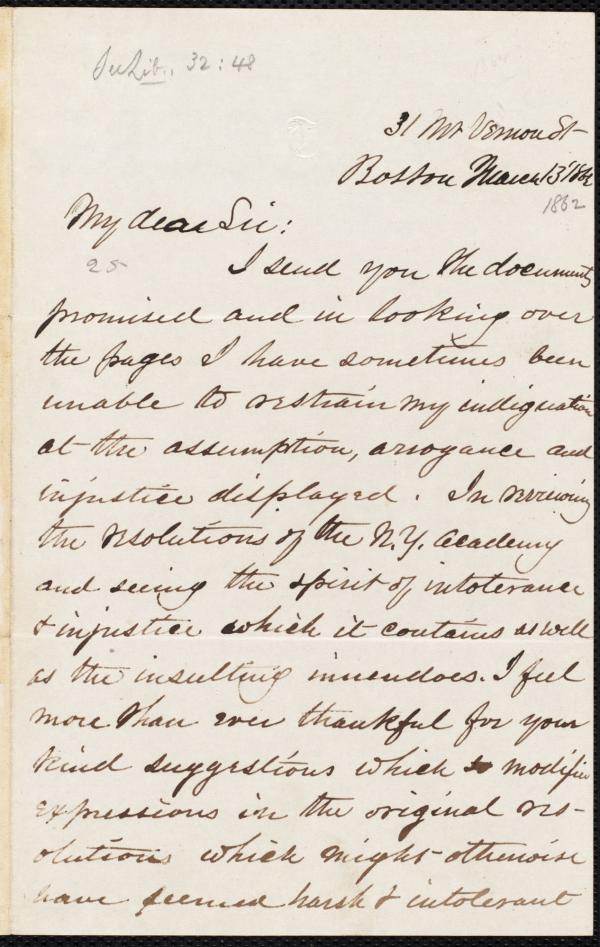 See Lib., 32 : 48
31 Mt Vernon St-
Boston March 13 1862
1862
My dear Sir:
25
I send you the documents
promised and in looking over
the pages I have sometimes been
unable to restrain my indignation
at the assumption, arrogance and
injustice displayed. In reviewing
the resolutions of the N.Y. Academy
and seeing the spirit of intolerance
& injustice which it contains as well
as the insulting innuendoes. I feel
more than ever thankful for your
kind suggestions which modified
expressions in the original res-
olutions which might otherwise
have seemed harsh & intolerant